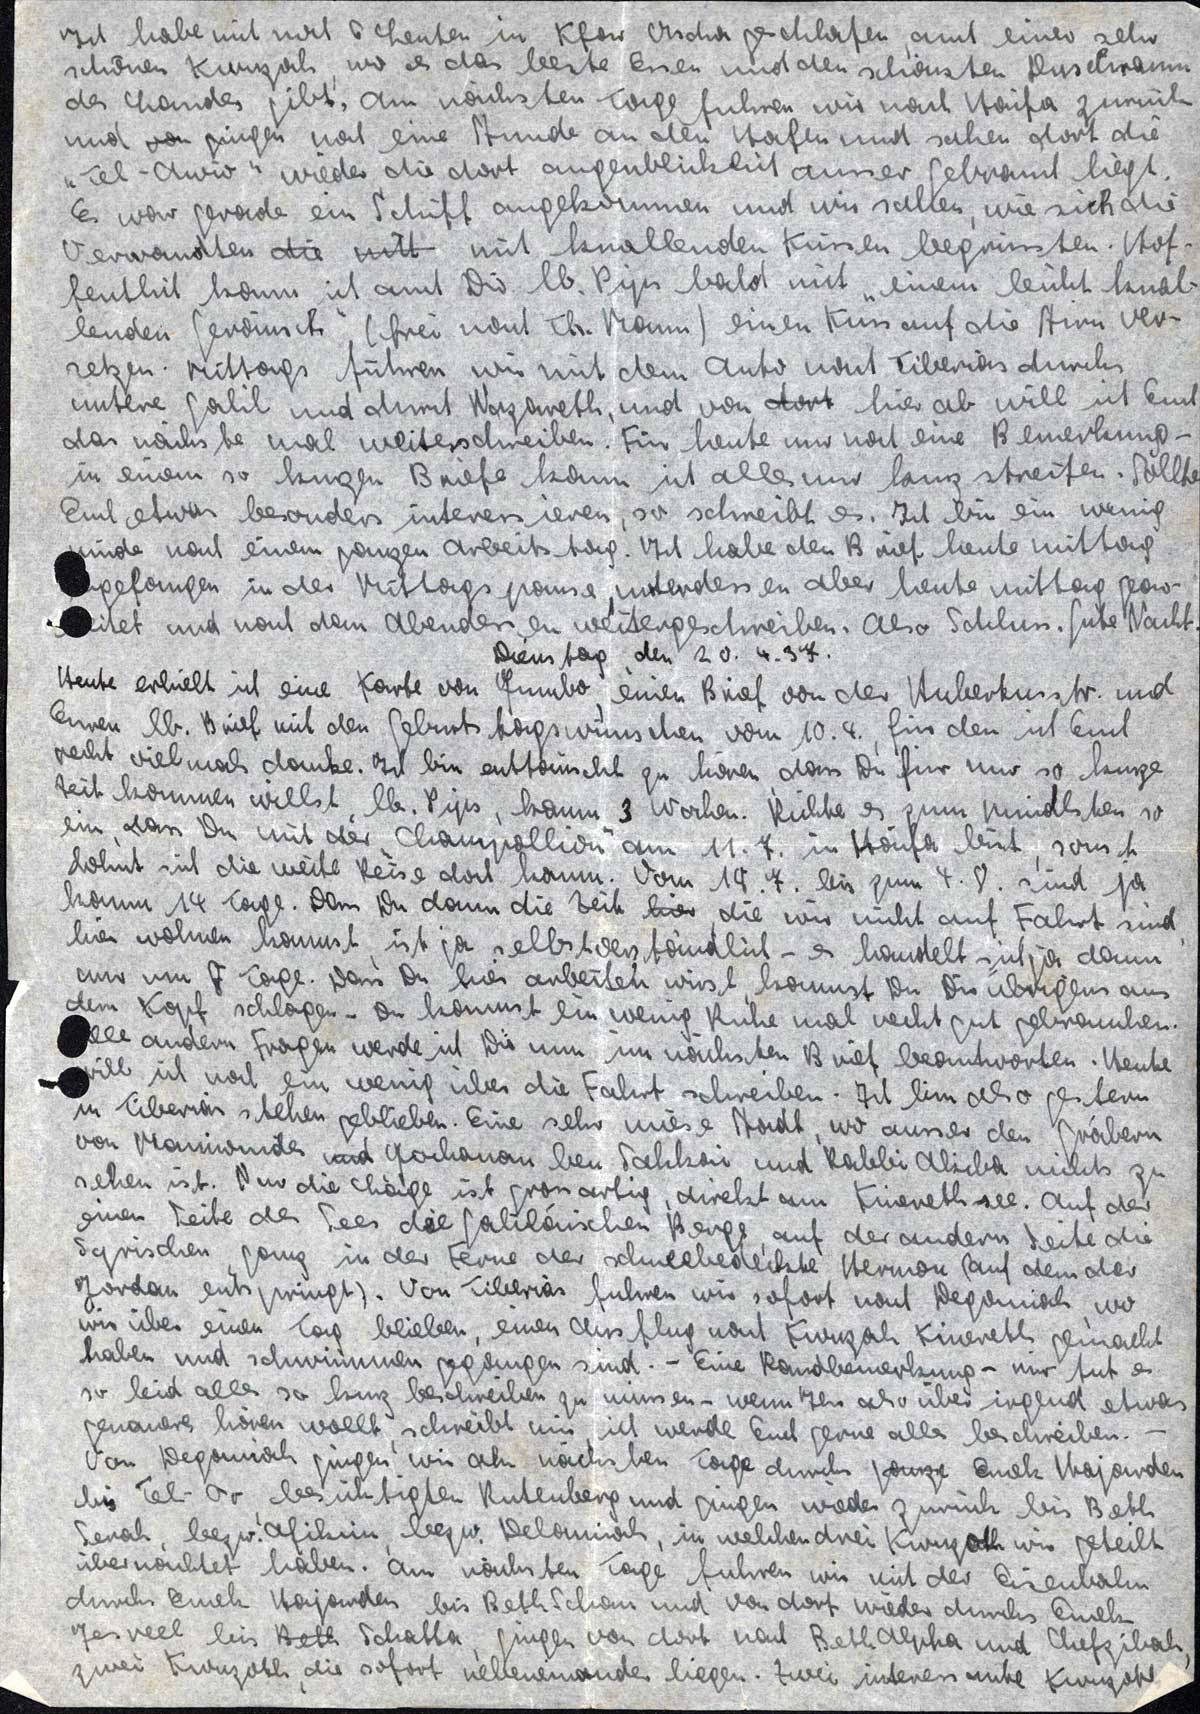 Ich habe mit noch 6 Leuten in Kfar Uscha geschlafen, auch einer sehr
schönen Kwuzah, wo es das beste Essen und den schönsten Duschraum
des Landes gibt. Am nächsten Tage fuhren wir nach Haifa zurück
und von gingen noch eine Stunde an den Hafen und sahen dort die
„Tel-Awiw" wieder die dort augenblicklich ausser Gebrauch liegt.
Es war gerade ein Schiff angekommen und wir sahen, wie sich die
Verwandten die mitt mit knallenden Küssen begrüssten. Hof-
fentlich kann ich auch Dir lb. Pips bald mit „einem leicht knal-
lenden Geräusch" (frei nach Th. Mann) einen Kuss auf die Stirn ver-
setzen. Mittags fuhren wir mit dem Auto nach Tiberias durchs
untere Galil und durch Nazareth, und von dort hier ab will ich Euch
das nächste mal weiterschreiben. Für heute nur noch eine Bemerkung -
in einem so kurzen Briefe kann ich alles nur kurz streifen. Sollte
Euch etwas besonders interessieren, so schreibt es. Ich bin ein wenig
müde nach einem ganzen Arbeitstag. Ich habe den Brief heute mittag
angefangen in der Mittagspause, unterdessen aber heute mittag gear-
beitet und nach dem Abendessen weitergeschreiben. Also Schluss. Gute Nacht.
Dienstag, den 20.4.37.
Heute erhielt ich eine Karte von Jumbo, einen Brief von der Huberkusstr. und
Euren lb. Brief mit den Geburtstagswünschen vom 10.4., für den ich Euch
recht vielmals danke. Ich bin enttäuscht zu hören, dass Du für nur so kurze
Zeit kommen willst, lb. Pips, kaum 3 Wochen. Richte es zum mindesten so
ein, dass Du mit der „Champollion" am 11.7. in Haifa bist, sonst
lohnt sich die weite Reise doch kaum. Vom 18.7. bis zum 4.8. sind ja
kaum 14 Tage. Dass Du dann die Zeit hier, die wir nicht auf Fahrt sind,
hier wohnen kannst, ist ja selbstverständlich - es handelt sich ja dann
nur um 7 Tage. Dass Du hier arbeiten wirst, kannst Du Dir übrigens aus
dem Kopf schlagen - Du kannst ein wenig Ruhe mal recht gut gebrauchen.
Alle andern Fragen werde ich Dir nun im nächsten Brief beantworten. Heute
will ich noch ein wenig über die Fahrt schreiben. Ich bin also gestern
in Tiberias stehen geblieben. Eine sehr miese Stadt, wo ausser den Gräbern
von Maimonides und Jochanan ben Sakkai und Rabbi Akiba nichts zu
sehen ist. Nur die Lage ist grossartig, direkt am Kinerethsee. Auf der
einen Seite des Sees die Galiläischen Berge, auf der andern Seite die
Syrischen, ganz in der Ferne der schneebedeckte Hermon (auf dem der
Jordan entspringt). Von Tiberias fuhren wir sofort nach Deganiah, wo
wir über einen Tag blieben, einen Ausflug nach Kwuzah Kinereth gemacht
haben und schwimmen gegangen sind. - Eine Randbemerkung - mir tut es
so leid alles so kurz beschreiben zu müssen - wenn Ihr also über irgend etwas
genauers hören wollt, schreibt mir, ich werde Euch gerne alles beschreiben. -
Von Deganiah gingen wir am nächsten Tage durchs ganze Emek Hajarden
bis Tel-Or, besichtigten Rutenberg und gingen wieder zurück bis Beth
Serah, bezw. Afikim, bezw. Delamiah, in welchen drei Kwuzoth wir geteilt
übernachtet haben. Am nächsten Tage fuhren wir mit der Eisenbahn
durchs Emek Hajarden bis Beth Schan und von dort wieder durchs Emek
Jesreel bis Beth Schatta, gingen von dort nach Beth Alpha und Chefzibah,
zwei Kwuzoth, die sofort nebeneinander liegen. Zwei interessante Kwuzoth